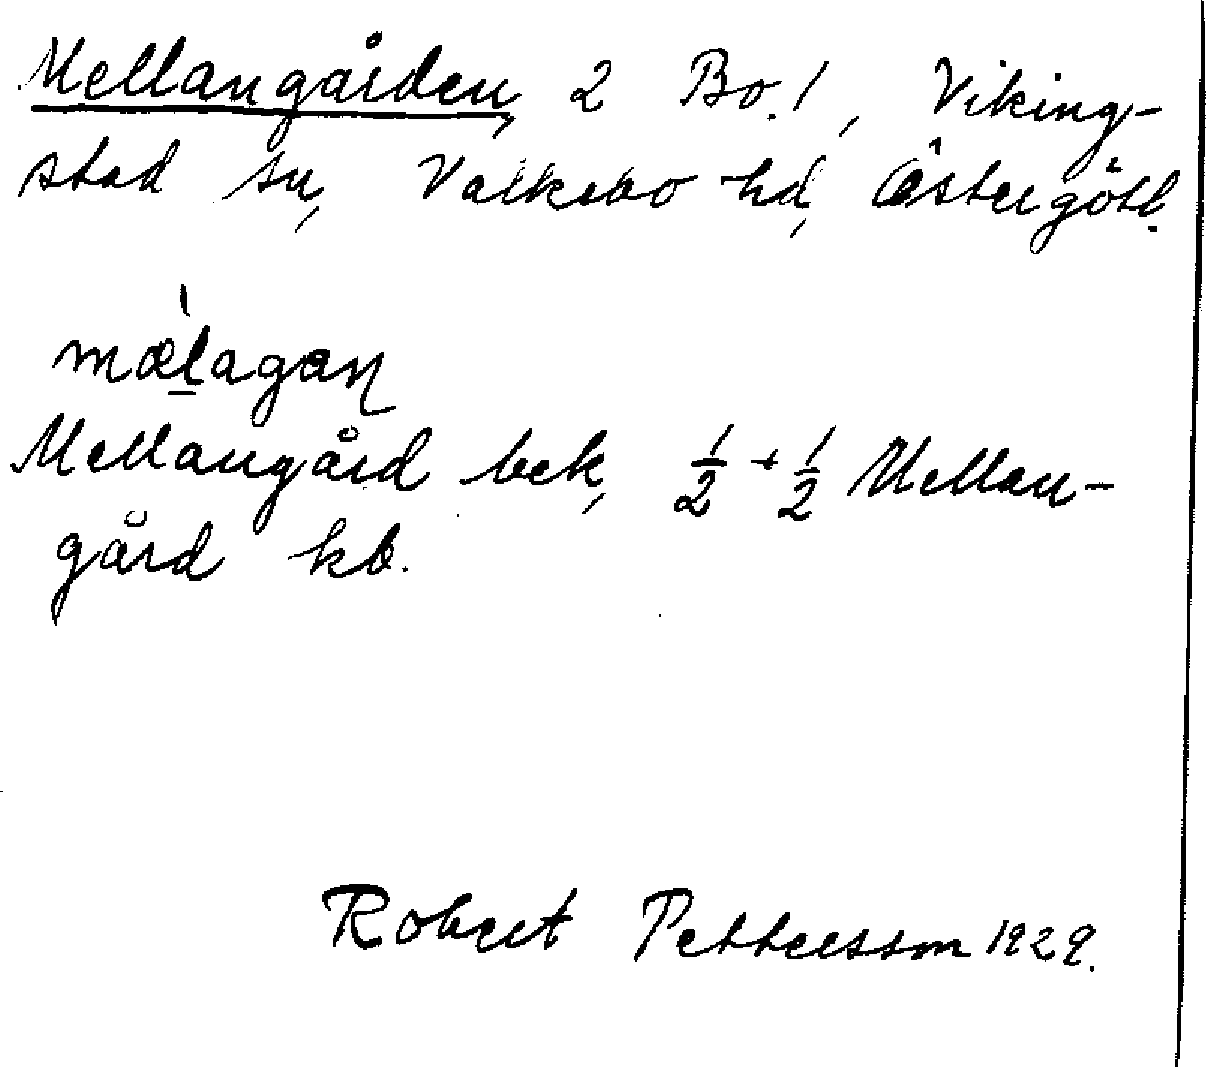 Mellangården, 2 Bo. 1, Viking-
stad sn, Valkebo hd, Östergötl.
mæ̀lagan
Mellangård bek, ½ + ½ Mellan-
gård kb.
Robert Pettersson 1929.